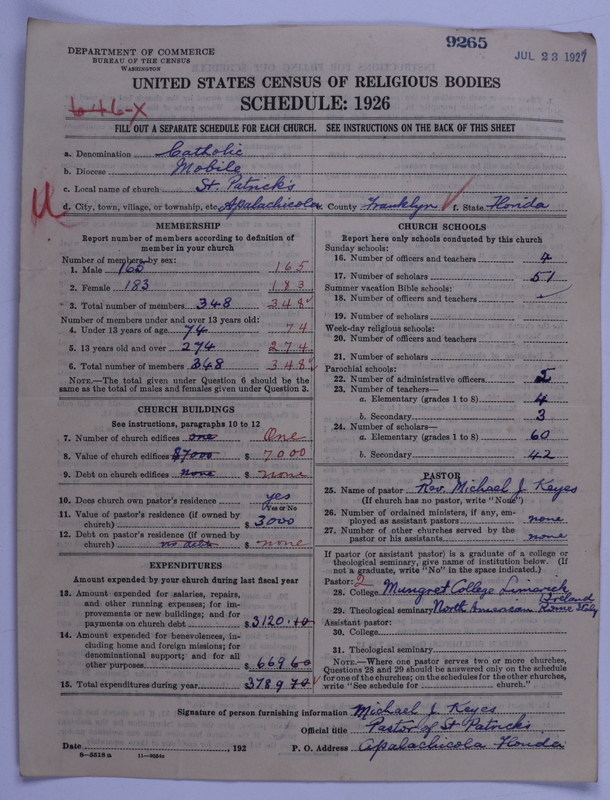 9265
JUL 23 1927
DEPARTMENT OF COMMERCE
BUREAU OF THE CENSUS
WASHINGTON
UNITED STATES CENSUS OF RELIGIOUS BODIES
SCHEDULE: 1926
646-X
FILL OUT A SEPARATE SCHEDULE FOR EACH CHURCH. SEE INSTRUCTIONS ON THE BACK OF THIS SHEET
a. Denomination Catholic
b. Diocese Mobile
c. Local name of church St. Patrick's
d. City, town, village, or township, etc. Apalachicola e. County Franklyn f. State Florida
MEMBERSHIP
Report number of members according to definition of
member in your church
Number of members by sex:
1. Male 165 165
2. Female 183 183
3. Total number of members 348 348
Number of members under and over 13 years old:
4. Under 13 years of age 74 74
5. 13 years old and over 274 274
6. Total number of members 348 348
NOTE.—The total given under Question 6 should be the
same as the total of males and females given under Question 3.
CHURCH BUILDINGS
See instructions, paragraphs 10 to 12
7. Number of church edifices one One
8. Value of church edifices $7000 $ 7000
9. Debt on church edifices none $ none
10. Does church own pastor's residence yes
Yes or No
11. Value of pastor's residence (if owned by
church) $ 3000
12. Debt on pastor's residence (if owned by
church) no debt $ none
EXPENDITURES
Amount expended by your church during last fiscal year
13. Amount expended for salaries, repairs,
and other running expenses; for im-
provements or new buildings; and for
payments on church debt $ 3120.10
14. Amount expended for benevolences, in-
cluding home and foreign missions; for
denominational support; and for all
other purposes $ 669 60
15. Total expenditures during year $ 3789 70
CHURCH SCHOOLS
Report here only schools conducted by this church
Sunday schools:
16. Number of officers and teachers 4
17. Number of scholars 51
Summer vacation Bible schools:
18. Number of officers and teachers
19. Number of scholars
Week-day religious schools:
20. Number of officers and teachers
21. Number of scholars
Parochial schools:
22. Number of administrative officers
23. Number of teachers—
a. Elementary (grades 1 to 8) 4
b. Secondary 3
24. Number of scholars—
a. Elementary (grades 1 to 8) 60
b. Secondary 42
PASTOR
25. Name of pastor Rev. Michael J. Keyes
(If church has no pastor, write "None")
26. Number of ordained ministers, if any, em-
ployed as assistant pastors none
27. Number of other churches served by the
pastor or his assistants none
If pastor (or assistant pastor) is a graduate of a college or
theological seminary, give name of institution below. (If
not a graduate, write "No" in the space indicated.)
Pastor: 2
28. College Mungret College Limerick Ireland
29. Theological seminary North American Rome Italy
Assistant pastor:
30. College
31. Theological seminary
NOTE.—Where one pastor serves two or more churches,
Questions 28 and 29 should be answered only on the schedule
for one of the churches; on the schedules for the other churches,
write "See schedule for church."
Signature of person furnishing information Michael J. Keyes
Official title Pastor of St Patricks
Date , 192 P. O. Address Apalachicola Florida
8—5516 a 11—9054a